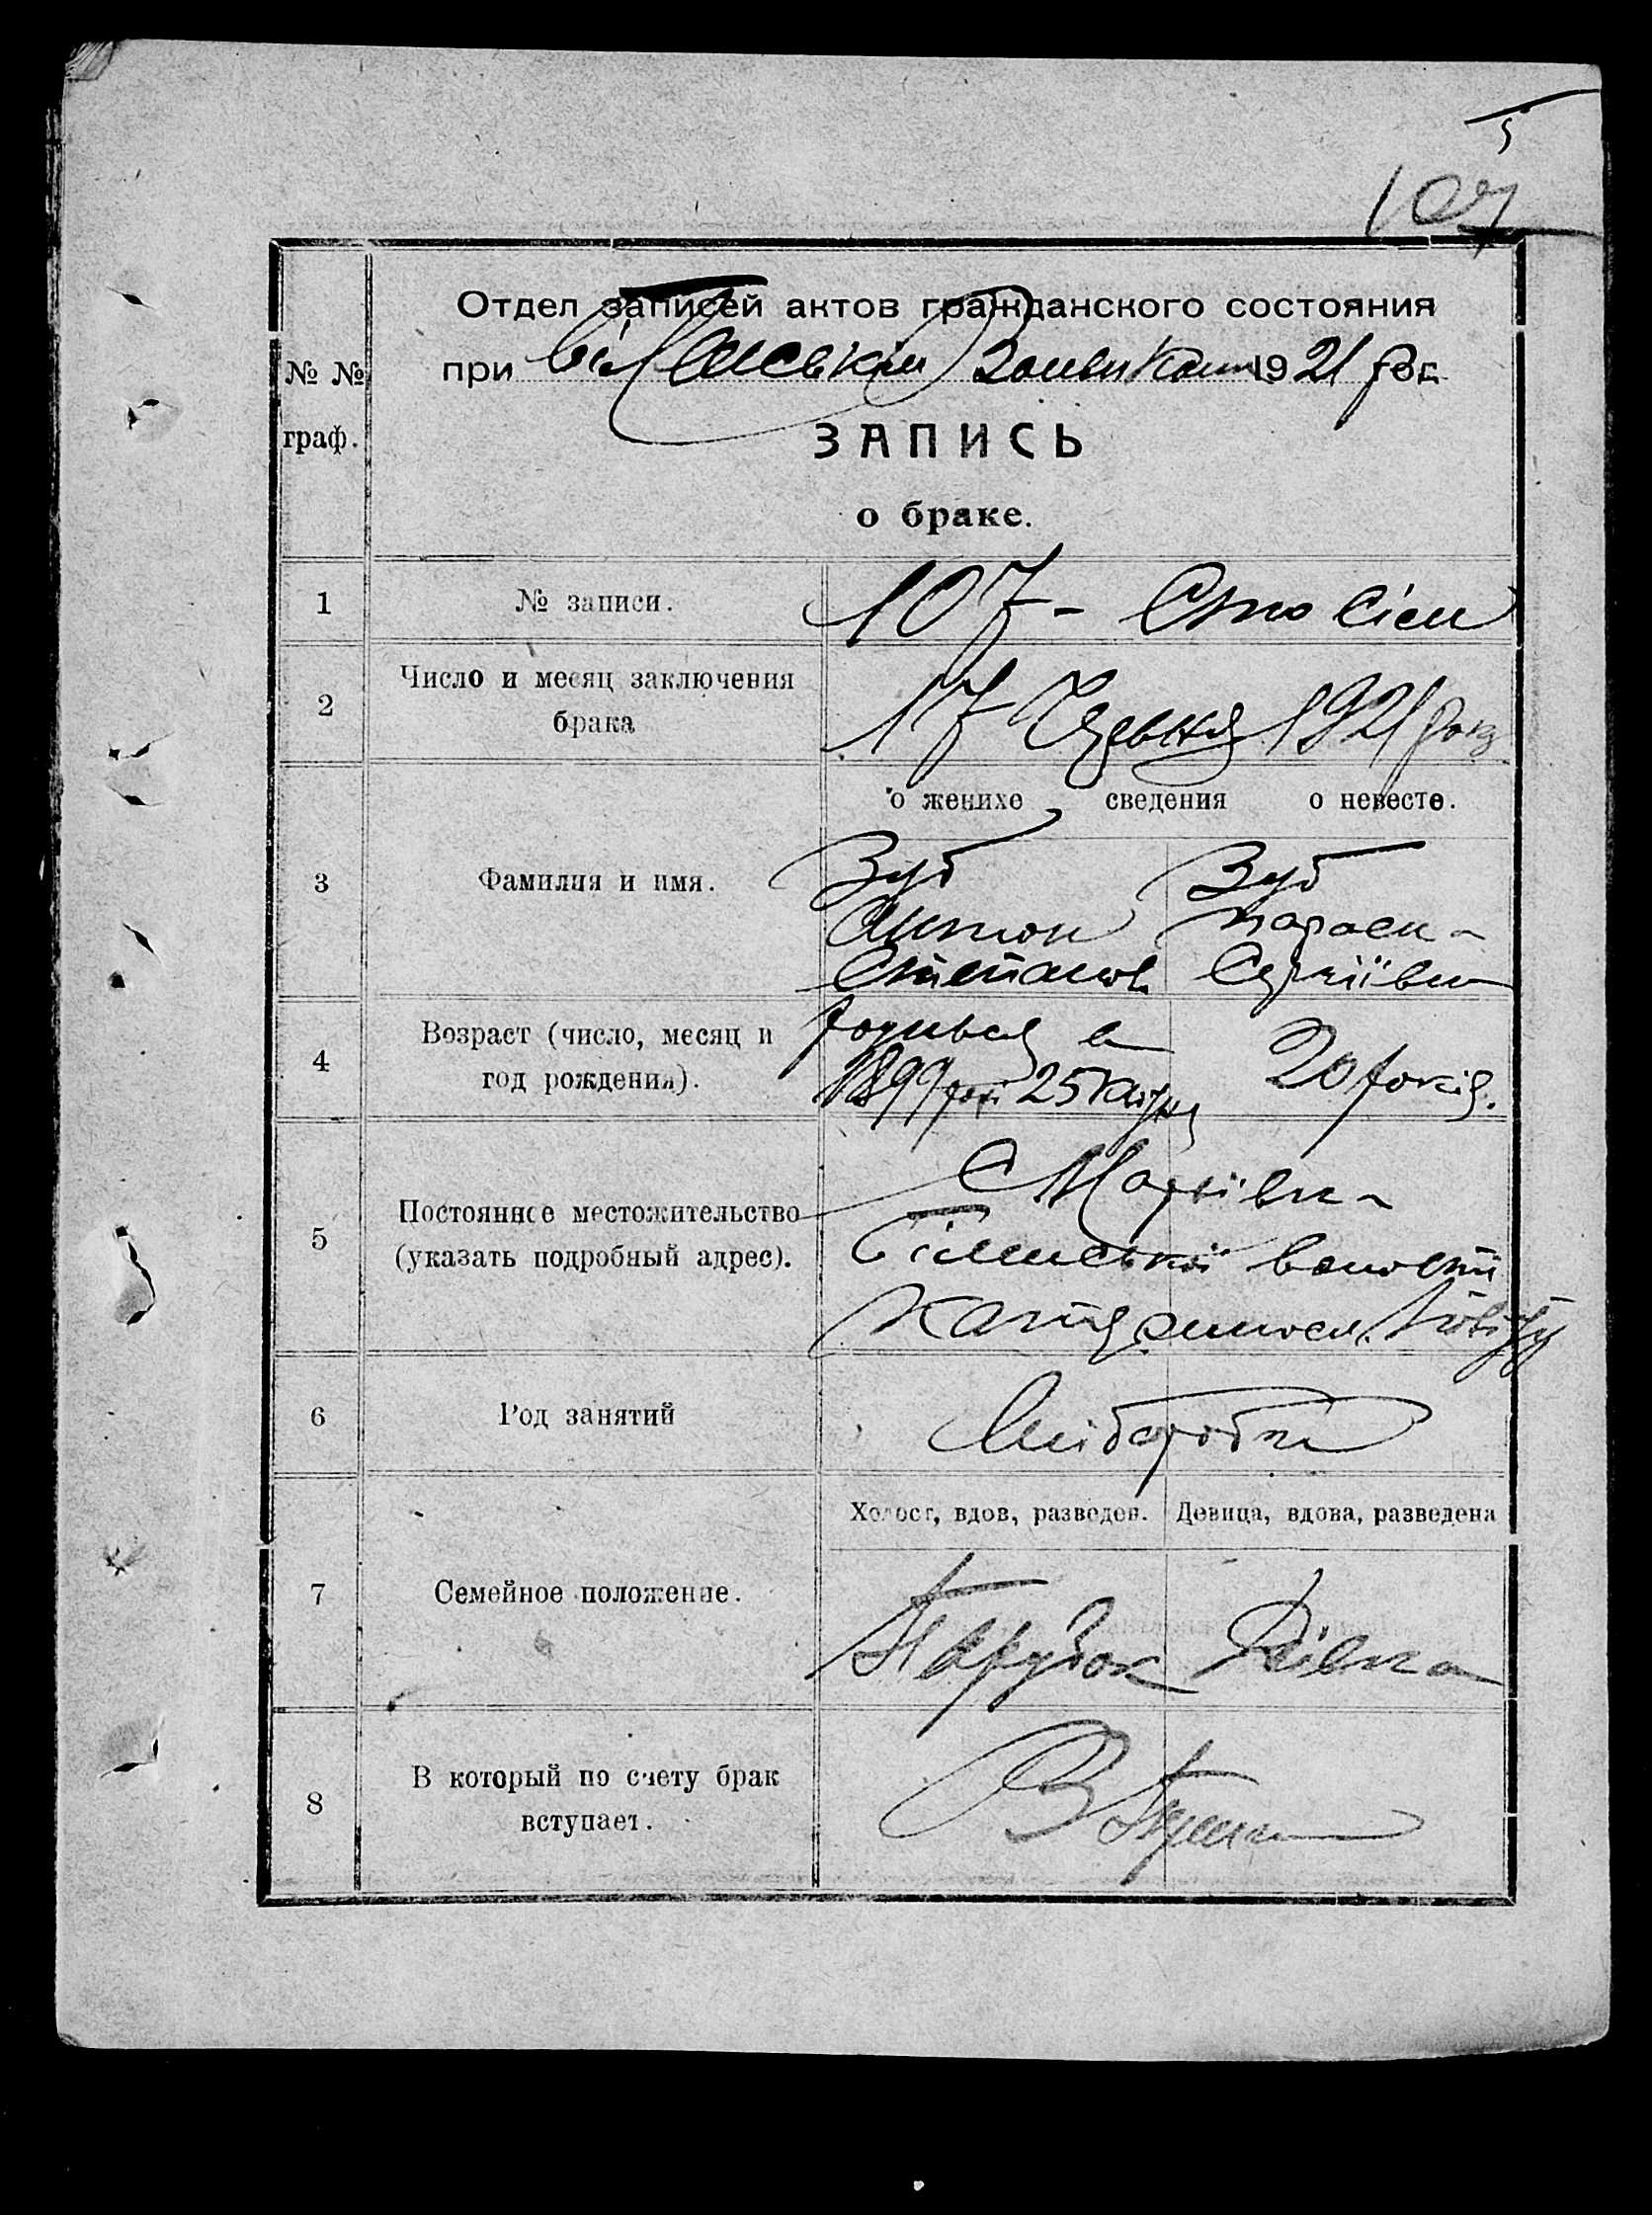 107
Отдел записей актов гражданского состояния
при 1921 рок
№ №
граф.
ЗАПИСЬ
о браке.
1 № записи. 107 - Сто Сім
2 Число и месяц заключения
брака
17 Червня 1921 року
о женихе сведения о невесте.
3 Фамилия и имя.
Зуб Зуб
Антон Параска
Степанов Сергіївна
4 Возраст (число, месяц и
год рождения).
родився в
1899 році 25 20 років.
5 Постоянное местожительство
(указать подробный адрес).
С
волости
повіту
6 Род занятий Хлібороби
Холост, вдов, разведен. Девица, вдова, разведена
7 Семейное положение.
Парубок Дівка
8 В который по счету брак
вступает.
В